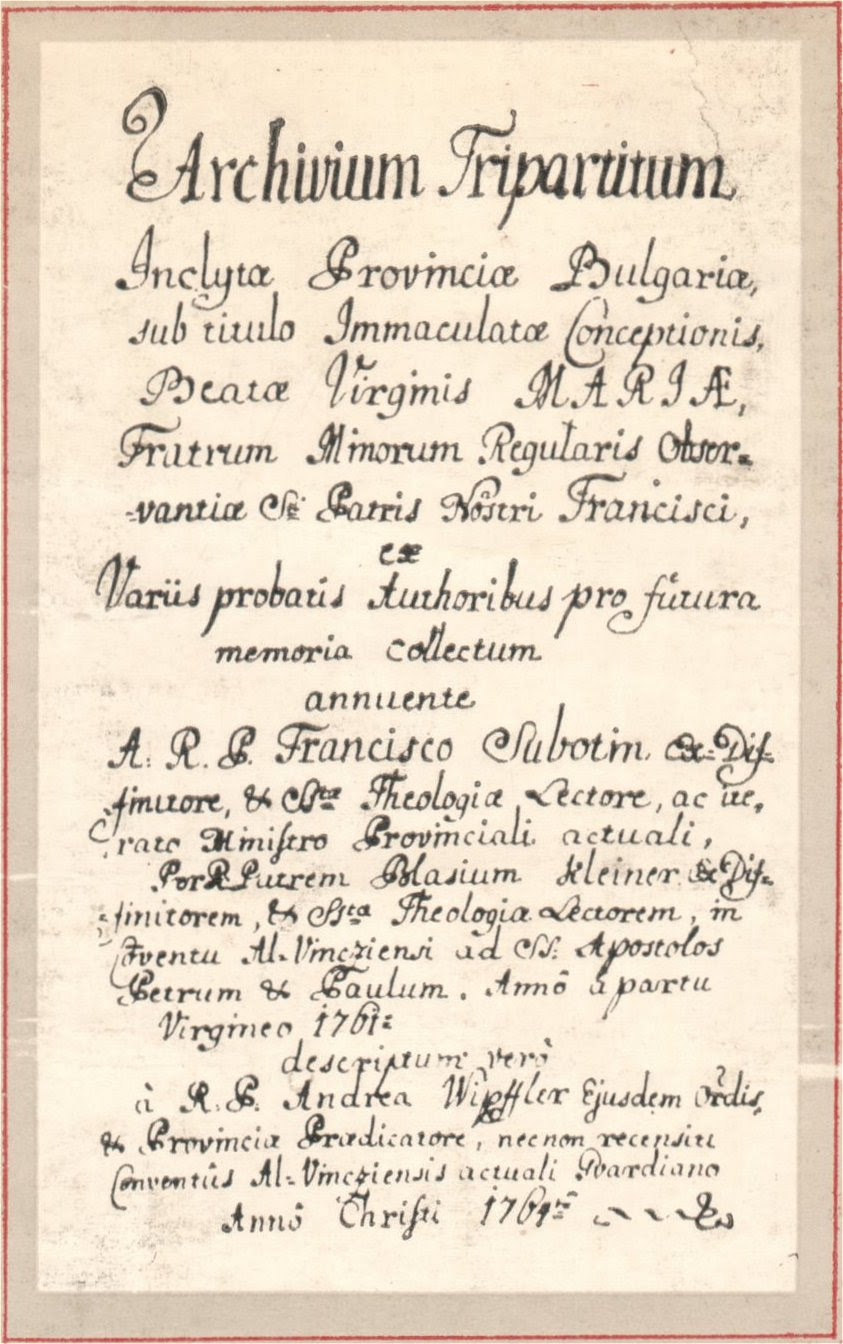 Archivium Tripartitum
Inclytæ Provinciæ Bulgariæ,
sub titulo Immaculatæ Conceptionis,
Beatæ Virginis MARIÆ,
Fratrum Minorum Regularis Obser-
-vantiæ Sti Patris Nostri Francisci,
ex
Variis probatis Authoribus pro futura
memoria collectum
annuente
A. R. P. Francisco Subotin Ex-Dif-
-finitore, & Sstæ Theologiæ Lectore, ac
Ministro Provinciali actuali,
Per R. Patrem Blasium Kleiner Ex Dif-
-finitorem, & Ssta Theologiæ Lectorem, in
Cōventu Al-Vincziensi ad SS. Apostolos
Petrum & Paulum. Annô â partu
Virgineo 1761
descriptum verô
à R. P. Andrea Wipffler Ejusdem Ordīs,
& Provinciæ Prædicatore, necnon recensiti
Conventûs Al-Vincziensis actuali Gvardiano
Annô Christi 1764